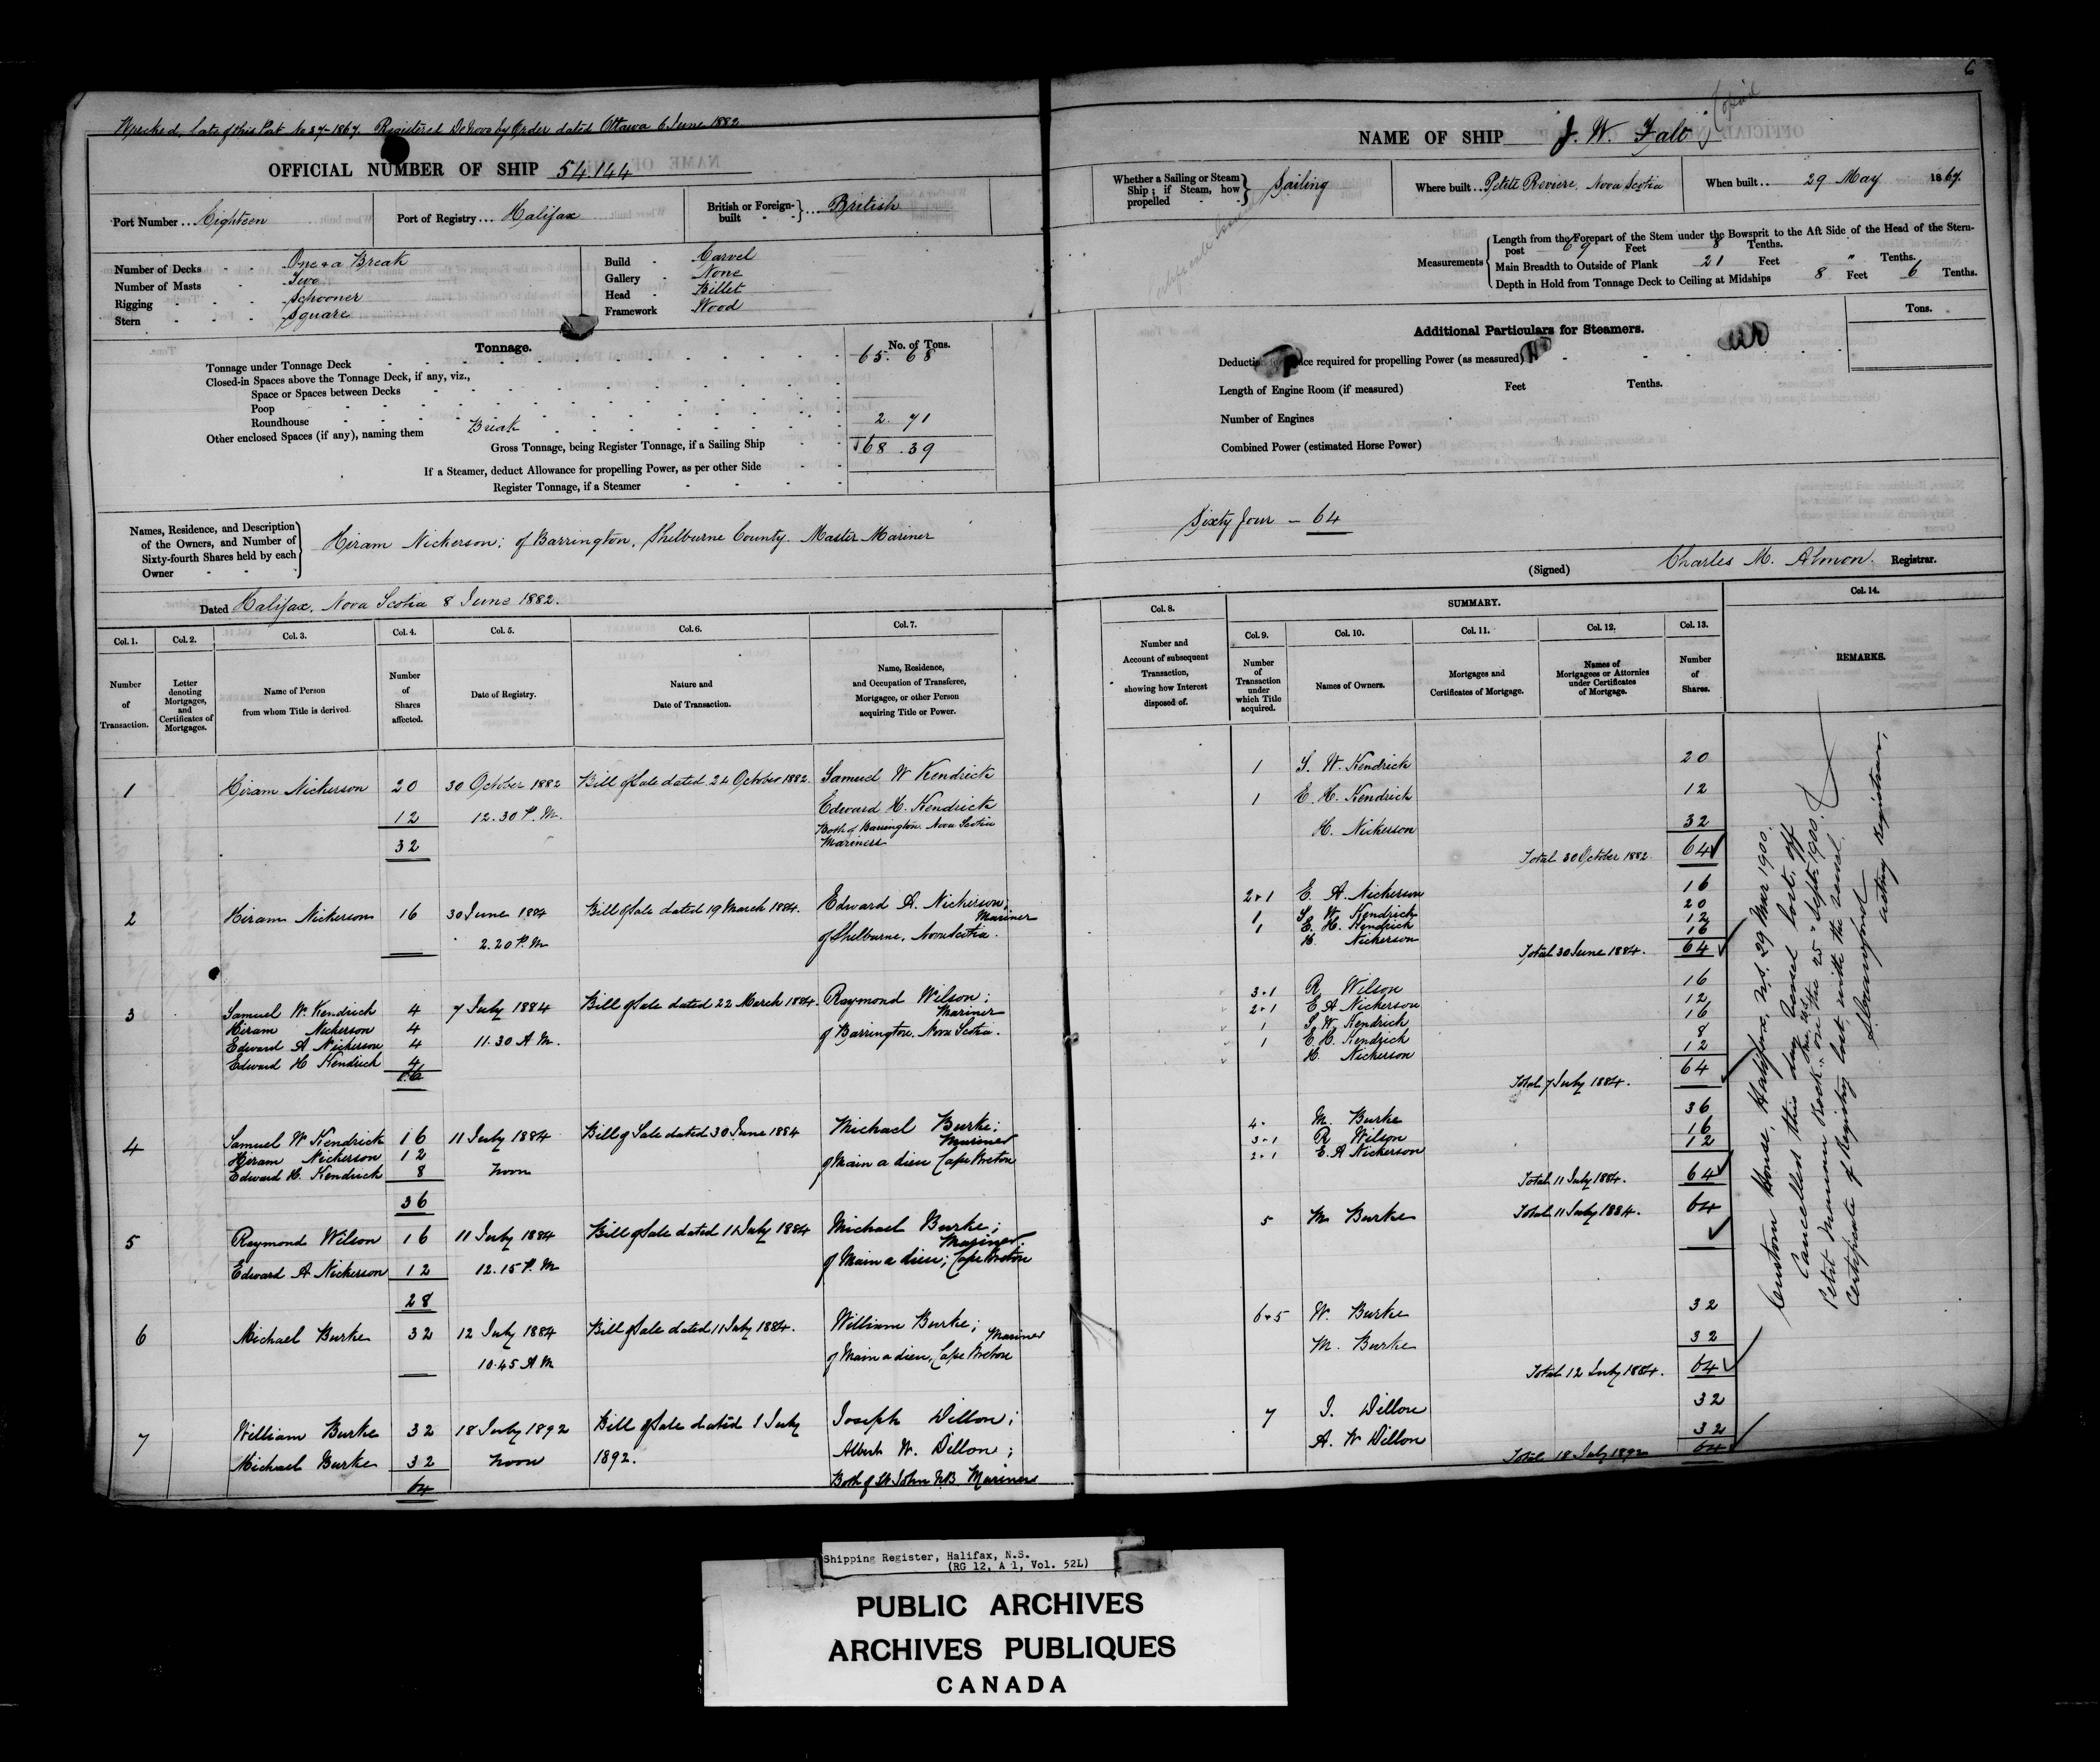 6
Wrecked, late of this Port No 37-1867. Registered De Novo by Order dated Ottawa 6 June 1882
OFFICIAL NUMBER OF SHIP 54.144
Port Number ... Eighteen
Port of Registry ... Halifax
British or Foreign-built ... British
Number of Decks One & a Break
Number of Masts Two
Rigging Schooner
Stern Square
Build Carvel
Gallery None
Head Billet
Framework Wood
Tonnage.
No. of Tons.
Tonnage under Tonnage Deck 65.68
Closed-in Spaces above the Tonnage Deck, if any, viz.,
Space or Spaces between Decks
Poop
Roundhouse
Other enclosed Spaces (if any), naming them Break 2.71
Gross Tonnage, being Register Tonnage, if a Sailing Ship 68.39
If a Steamer, deduct Allowance for propelling Power, as per other Side
Register Tonnage, if a Steamer
Names, Residence, and Description
of the Owners, and Number of
Sixty-fourth Shares held by each
Owner
Hiram Nickerson; of Barrington, Shelburne County. Master Mariner
Dated Halifax, Nova Scotia 8 June 1882.
Col. 1. Col. 2. Col. 3. Col. 4. Col. 5. Col. 6. Col. 7.
Number of Transaction.
Letter denoting Mortgages, and Certificates of Mortgages.
Name of Person from whom Title is derived.
Number of Shares affected.
Date of Registry.
Nature and Date of Transaction.
Name, Residence, and Occupation of Transferee, Mortgagee, or other Person acquiring Title or Power.
1 Hiram Nickerson 20 30 October 1882 Bill of Sale dated 24 October 1882. Samuel W Kendrick
12 12.30 P.M. Edward H. Kendrick
32 Both of Barrington. Nova Scotia
Mariners
2 Hiram Nickerson 16 30 June 1884 Bill of Sale dated 19 March 1884. Edward A. Nickerson;
Mariner
2.20 P.M of Shelburne, Nova Scotia.
3 Samuel W. Kendrick 4 7 July 1884 Bill of Sale dated 22 March 1884. Raymond Wilson;
Hiram Nickerson 4 Mariner
Edward A Nickerson 4 11.30 A.M. of Barrington. Nova Scotia.
Edward H Kendrick 4
16
4 Samuel W Kendrick 16 11 July 1884 Bill of Sale dated 30 June 1884 Michael Burke;
Hiram Nickerson 12 Mariner
Edward H. Kendrick 8 Noon of Main a dieu Cape Breton
36
5 Raymond Wilson 16 11 July 1884 Bill of Sale dated 11 July 1884 Michael Burke;
Mariner.
Edward A Nickerson 12 12.15 P.M of Main a dieu; Cape Breton
28
6 Michael Burke 32 12 July 1884 Bill of Sale dated 11 July 1884. William Burke;
Mariner
10.45 A M of Main a dieu, Cape Breton
7 William Burke 32 18 July 1892 Bill of Sale dated 1 July Joseph Dillon;
Michael Burke 32 Noon 1892. Albert W. Dillon;
64 Both of St John NB. Mariners
NAME OF SHIP J. W. Falt
Whether a Sailing or Steam
Ship; if Steam, how
propelled
Sailing
Where built .. Petite Riviere, Nova Scotia
When built .. 29 May 1867
Measurements
Length from the Forepart of the Stem under the Bowsprit to the Aft Side of the Head of the Stern-
post 69 Feet 8 Tenths.
Main Breadth to Outside of Plank 21 Feet " Tenths.
Depth in Hold from Tonnage Deck to Ceiling at Midships 8 Feet 6 Tenths.
Additional Particulars for Steamers.
Tons.
required for propelling Power (as measured)
Length of Engine Room (if measured) Feet Tenths.
Number of Engines
Combined Power (estimated Horse Power)
Sixty four - 64
(Signed) Charles M. Almon. Registrar.
SUMMARY.
Col. 8. Col. 9. Col. 10. Col. 11. Col. 12. Col. 13. Col. 14.
Number and Account of subsequent Transaction, showing how Interest disposed of.
Number of Transaction under which Title acquired.
Names of Owners.
Mortgages and Certificates of Mortgage.
Names of Mortgagees or Attornies under Certificates of Mortgage.
Number of Shares.
REMARKS.
1 S. W. Kendrick 20
1 E. H. Kendrick 12
H. Nickerson 32
Total 30 October 1882. 64
2+1 E. A. Nickerson 16
1 S. W. Kendrick 20
1 E. H. Kendrick 12
H. Nickerson 16
Total 30 June 1884. 64
3+1 R Wilson 16
2+1 E A Nickerson 12
1 S. W. Kendrick 16
1 E. H. Kendrick 8
H. Nickerson 12
Total 7 July 1884. 64
4. M. Burke 36
3+1 R Wilson 16
2+1 E. A Nickerson 12
Total 11 July 1884. 64
5 M Burke Total 11 July 1884. 64
6+5 W. Burke 32
M. Burke 32
Total 12 July 1884. 64
7 J. Dillon 32
A. W Dillon 32
Total 18 July 1892 64
Custom House, Halifax, N.S. 29 Mar 1900.
Cancelled this day. Vessel lost off
Petit Rock on the 25" Sept. 1900.
Certificate of Registry lost with the vessel.
Acting Registrar.
Shipping Register, Halifax, N.S.
(RG 12, A 1, Vol. 52L)
PUBLIC ARCHIVES
ARCHIVES PUBLIQUES
CANADA